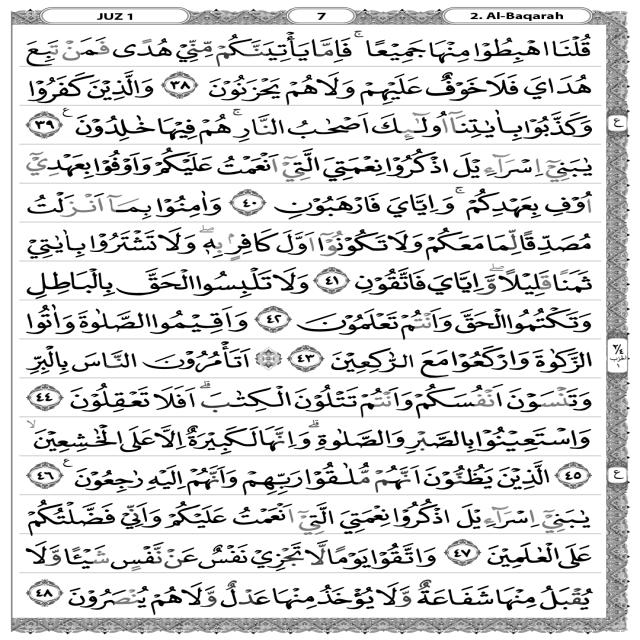 JUZ 1 7 2. Al-Baqarah
قُلْنَا اهْبِطُوْا مِنْهَا جَمِيْعًا ۚ فَاِمَّا يَأْتِيَنَّكُمْ مِّنِّيْ هُدًى فَمَنْ تَبِعَ
هُدَايَ فَلَا خَوْفٌ عَلَيْهِمْ وَلَا هُمْ يَحْزَنُوْنَ ﴿٣٨﴾ وَالَّذِيْنَ كَفَرُوْا
وَكَذَّبُوْا بِاٰيٰتِنَآ اُولٰۤئِكَ اَصْحٰبُ النَّارِ ۚ هُمْ فِيْهَا خٰلِدُوْنَ ࣖ ﴿٣٩﴾
يٰبَنِيْٓ اِسْرَاۤءِيْلَ اذْكُرُوْا نِعْمَتِيَ الَّتِيْٓ اَنْعَمْتُ عَلَيْكُمْ وَاَوْفُوْا بِعَهْدِيْٓ
اُوْفِ بِعَهْدِكُمْ ۚ وَاِيَّايَ فَارْهَبُوْنِ ﴿٤٠﴾ وَاٰمِنُوْا بِمَآ اَنْزَلْتُ
مُصَدِّقًا لِّمَا مَعَكُمْ وَلَا تَكُوْنُوْٓا اَوَّلَ كَافِرٍۢ بِهٖ ۖ وَلَا تَشْتَرُوْا بِاٰيٰتِيْ
ثَمَنًا قَلِيْلًا ۖ وَّاِيَّايَ فَاتَّقُوْنِ ﴿٤١﴾ وَلَا تَلْبِسُوا الْحَقَّ بِالْبَاطِلِ
وَتَكْتُمُوا الْحَقَّ وَاَنْتُمْ تَعْلَمُوْنَ ﴿٤٢﴾ وَاَقِيْمُوا الصَّلٰوةَ وَاٰتُوا
الزَّكٰوةَ وَارْكَعُوْا مَعَ الرّٰكِعِيْنَ ﴿٤٣﴾ ۞ اَتَأْمُرُوْنَ النَّاسَ بِالْبِرِّ
وَتَنْسَوْنَ اَنْفُسَكُمْ وَاَنْتُمْ تَتْلُوْنَ الْكِتٰبَ ۗ اَفَلَا تَعْقِلُوْنَ ﴿٤٤﴾
وَاسْتَعِيْنُوْا بِالصَّبْرِ وَالصَّلٰوةِ ۗ وَاِنَّهَا لَكَبِيْرَةٌ اِلَّا عَلَى الْخٰشِعِيْنَ ۙ
﴿٤٥﴾ الَّذِيْنَ يَظُنُّوْنَ اَنَّهُمْ مُّلٰقُوْا رَبِّهِمْ وَاَنَّهُمْ اِلَيْهِ رٰجِعُوْنَ ࣖ ﴿٤٦﴾
يٰبَنِيْٓ اِسْرَاۤءِيْلَ اذْكُرُوْا نِعْمَتِيَ الَّتِيْٓ اَنْعَمْتُ عَلَيْكُمْ وَاَنِّيْ فَضَّلْتُكُمْ
عَلَى الْعٰلَمِيْنَ ﴿٤٧﴾ وَاتَّقُوْا يَوْمًا لَّا تَجْزِيْ نَفْسٌ عَنْ نَّفْسٍ شَيْـًٔا وَّلَا
يُقْبَلُ مِنْهَا شَفَاعَةٌ وَّلَا يُؤْخَذُ مِنْهَا عَدْلٌ وَّلَا هُمْ يُنْصَرُوْنَ ﴿٤٨﴾
ع
ع